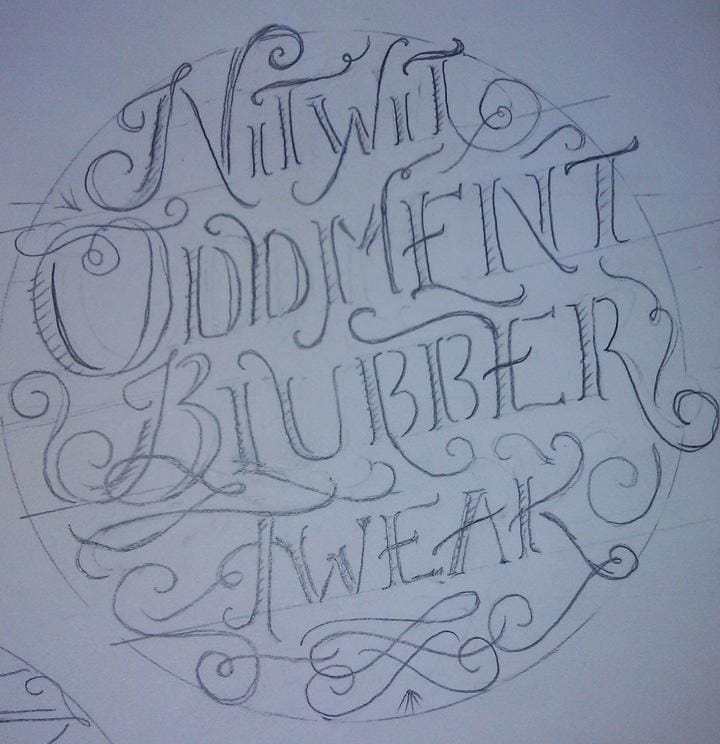 NiTWiT
ODDMENT
BLUBBER
TWEAK